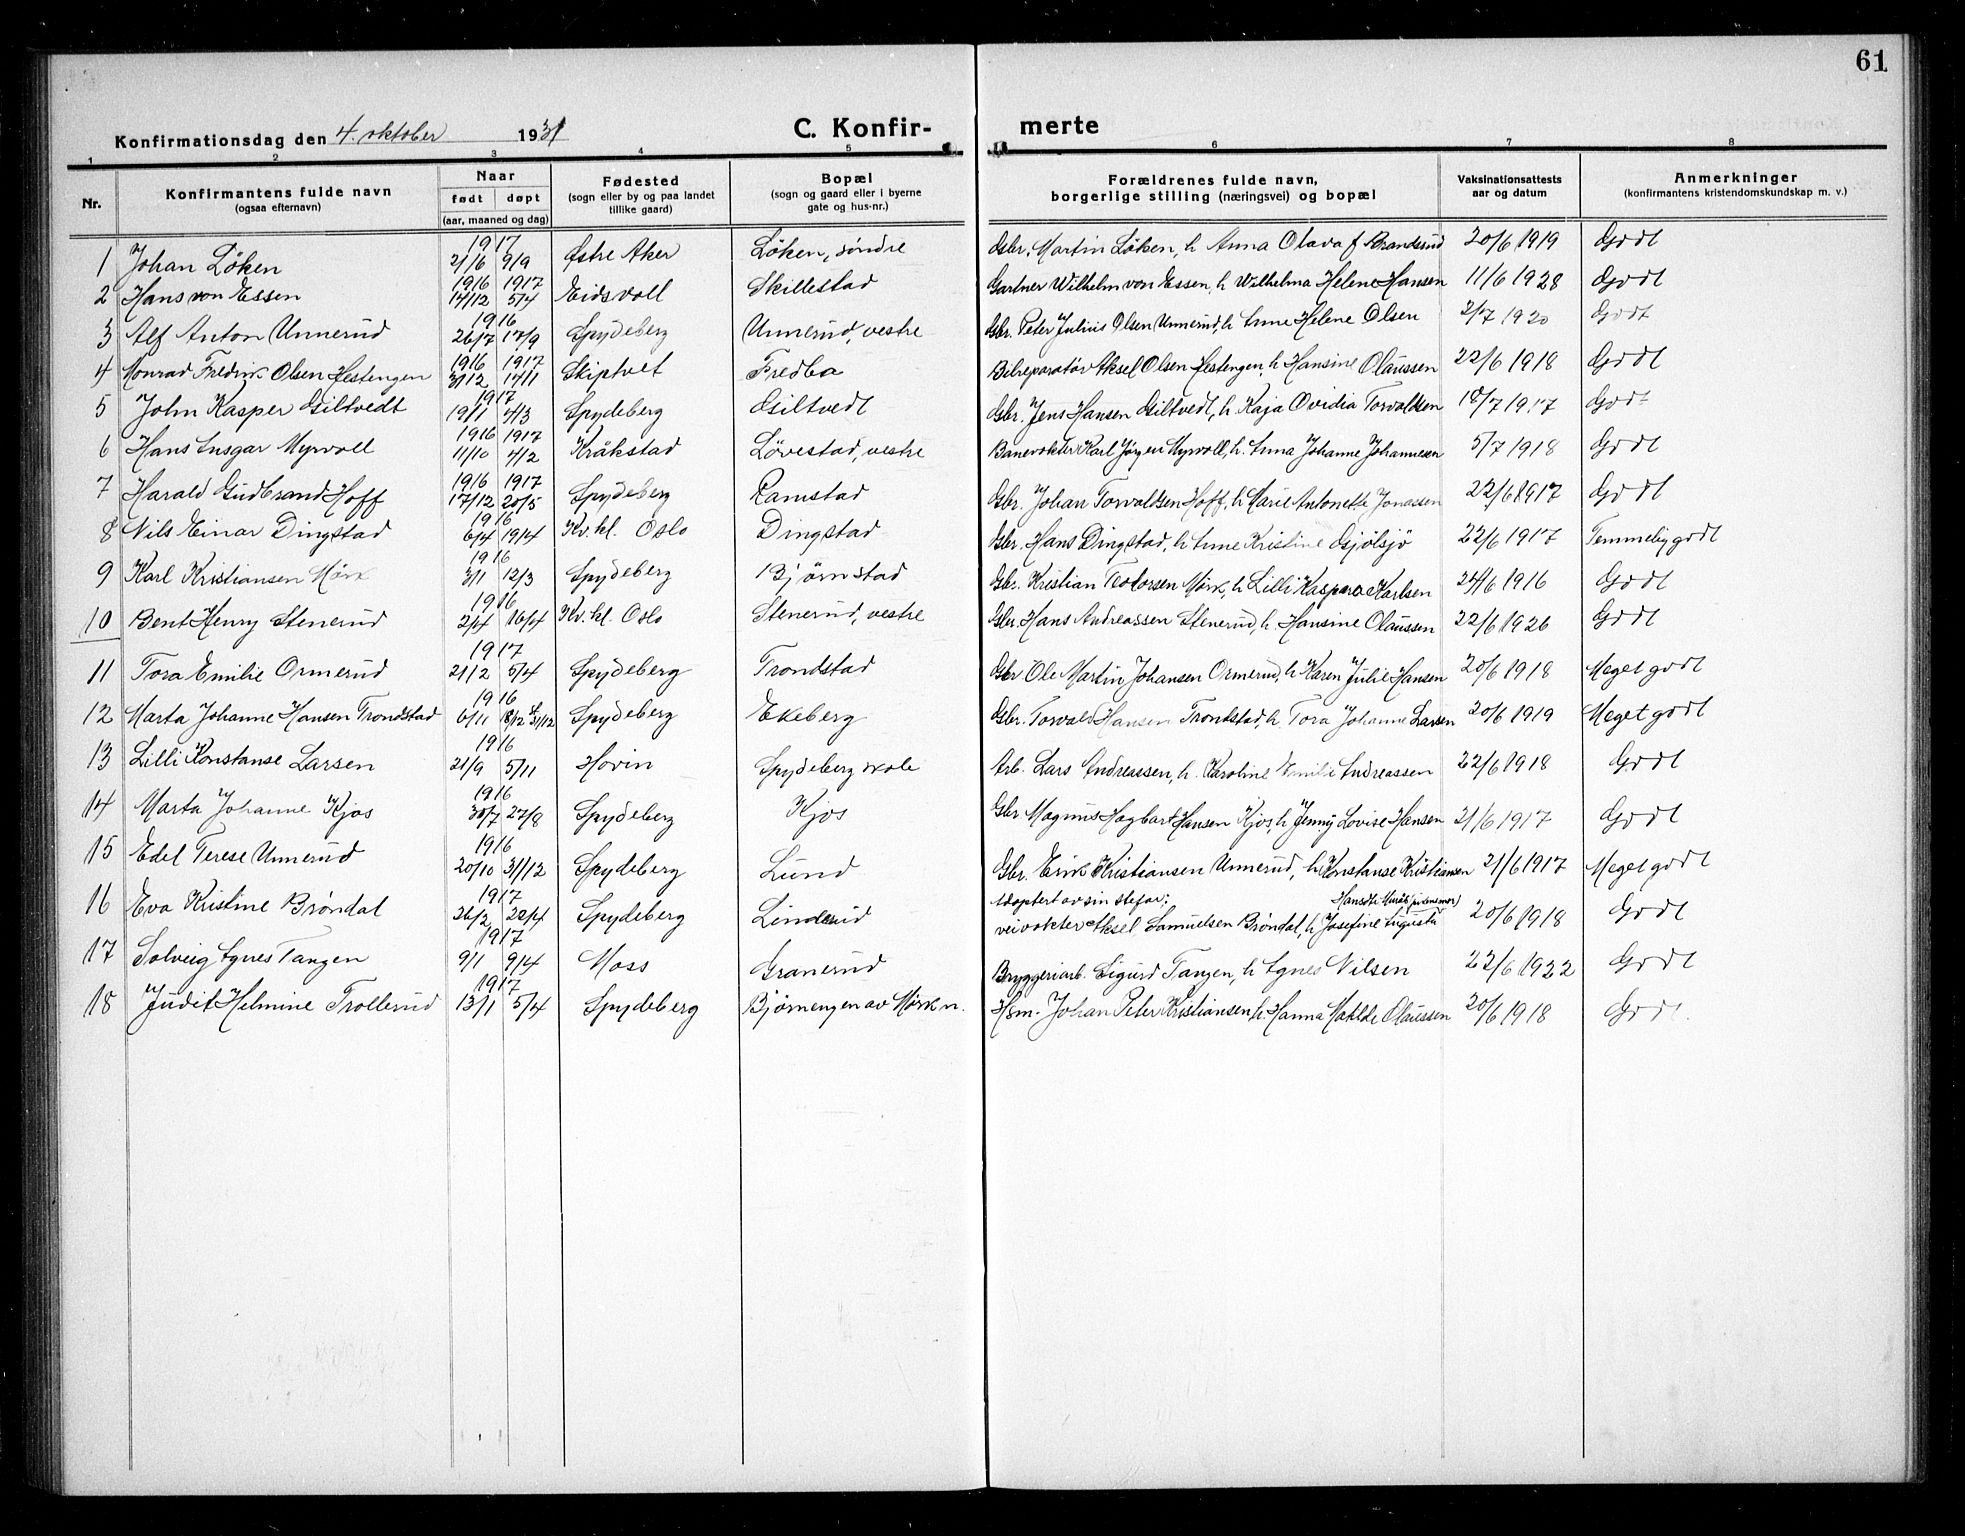 61
Konfirmationsdag den 4. oktober 1931 C. Konfir- merte
1 2 3 4 5 6 7 8
Nr. Konfirmantens fulde navn (ogsaa efternavn) Naar født døpt (aar, maaned og dag) Fødested (sogn eller by og paa landet tillike gaard) Bopæl (sogn og gaard eller i byerne gate og hus-nr.) Forældrenes fulde navn, borgerlige stilling (næringsvei) og bopæl Vaksinationsattests aar og datum Anmerkninger (konfirmantens kristendomskundskap m. v.)
1 Johan Löken 1917 21/6 9/9 Østre Aker Löken, söndre Gbr. Martin Løken, h. Anna Olava f. Brandsrud 20/6 1919 Godt
2 Hans von Essen 1916 14/12 1917 5/4 Eidsvoll Skillestad Gartner Wilhelm von Essen, h. Wilhelma Helene Hansen 11/6 1928 Godt
3 Alf Anton Unnerud 1916 26/7 17/9 Spydeberg Unnerud, vestre Gbr. Peter Julius Olsen Unnerud, h. Anne Helene Olsen 2/7 1920 Godt
4 Monrad Fredrik Olsen Hestengen 1916 3/12 1917 14/1 Skiptvet Fredbo Bilreparatör Aksel Olsen Hestengen, h. Hansine Olaussen 22/6 1918 Godt
5 John Kasper Giltvedt 1917 19/1 4/3 Spydeberg Giltvedt Gbr. Jens Hansen Giltvedt, h. Kaja Ovidia Torvaldsen 18/7 1917 Godt
6 Hans Ansgar Myrvoll 1916 11/10 1917 4/2 Kråkstad Lövestad, vestre Banevokter Karl Jørgen Myrvoll, h. Anna Johanne Johannesen 5/7 1918 Godt
7 Harald Gudbrand Hoff 1916 17/12 1917 20/5 Spydeberg Ramstad Gbr. Johan Torvaldsen Hoff, h. Marie Antonette Jonassen 22/6 1917 Godt
8 Nils Einar Dingstad 1916 6/4 19/4 Kv. kl. Oslo Dingstad Gbr. Hans Dingstad, h. Anne Kristine Gjölsjö 22/6 1917 Temmelig godt
9 Karl Kristiansen Mörk 1916 3/1 12/3 Spydeberg Bjørnstad Gbr. Kristian Teodorsen Mörk, h. Lilli Kaspara Karlsen 24/6 1916 Godt
10 Bent Henry Stenerud 1916 2/4 16/4 Kv. kl. Oslo Stenerud, vestre Gbr. Hans Andreassen Stenerud, h. Hansine Olaussen 22/6 1926 Godt
11 Tora Emilie Ormerud 1917 21/2 5/4 Spydeberg Trondstad Gbr Ole Martin Johansen Ormerud, h. Karen Julie Hansen 20/6 1918 Meget godt
12 Marta Johanne Hansen Trondstad 1916 6/11 31/12 Spydeberg Ekeberg Gbr. Torvald Hansen Trondstad, h. Tora Johanne Larsen 20/6 1919 Meget godt
13 Lilli Konstanse Larsen 1916 21/9 5/11 Hovin Spydeberg skole Arb. Lars Andreassen, h. Karoline Emilie Andreassen 22/6 1918 Godt
14 Marta Johanne Kjos 1916 30/7 27/8 Spydeberg Kjos Gbr Magnus Hagbart Hansen Kjos, h. Jenny Lovise Hansen 21/6 1917 Godt
15 Edel Terese Unnerud 1916 20/10 31/12 Spydeberg Lund Gbr. Erik Kristiansen Unnerud, h. Konstanse Kristiansen 21/6 1917 Meget godt
16 Eva Kristine Bröndal 1917 26/2 22/4 Spydeberg Linderud Adoptert av sin stefar; veivokter Aksel Samuelsen Bröndal, h. Josefine Augusta 20/6 1918 Godt
17 Solveig Agnes Tangen 1917 9/1 9/4 Moss Granerud Bryggeriarb. Sigurd Tangen, h. Agnes Nilsen 22/6 1922 Godt
18 Judit Helmine Trollerud 1917 13/1 5/4 Spydeberg Bjørnengen av Mörk n. Hsm. Johan Peter Kristiansen h. Hanna Matilde Olaussen 20/6 1918 Godt.